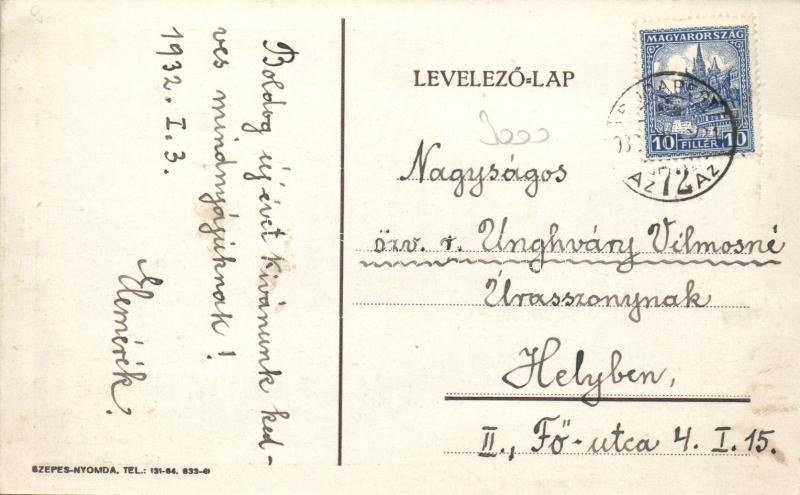 Boldog új évet kivánunk ked-
ves mindnyájuknak!
1932. I. 3.
Elemérék.
SZEPES-NYOMDA, TEL.: 131-64. 633-61
LEVELEZŐ-LAP
MAGYARORSZÁG
10 FILLÉR 10
BUDAPEST
72
AZ AZ
Nagyságos
özv. v. Unghváry Vilmosné
Úrasszonynak
Helyben,
II., Fő-utca 4. I. 15.